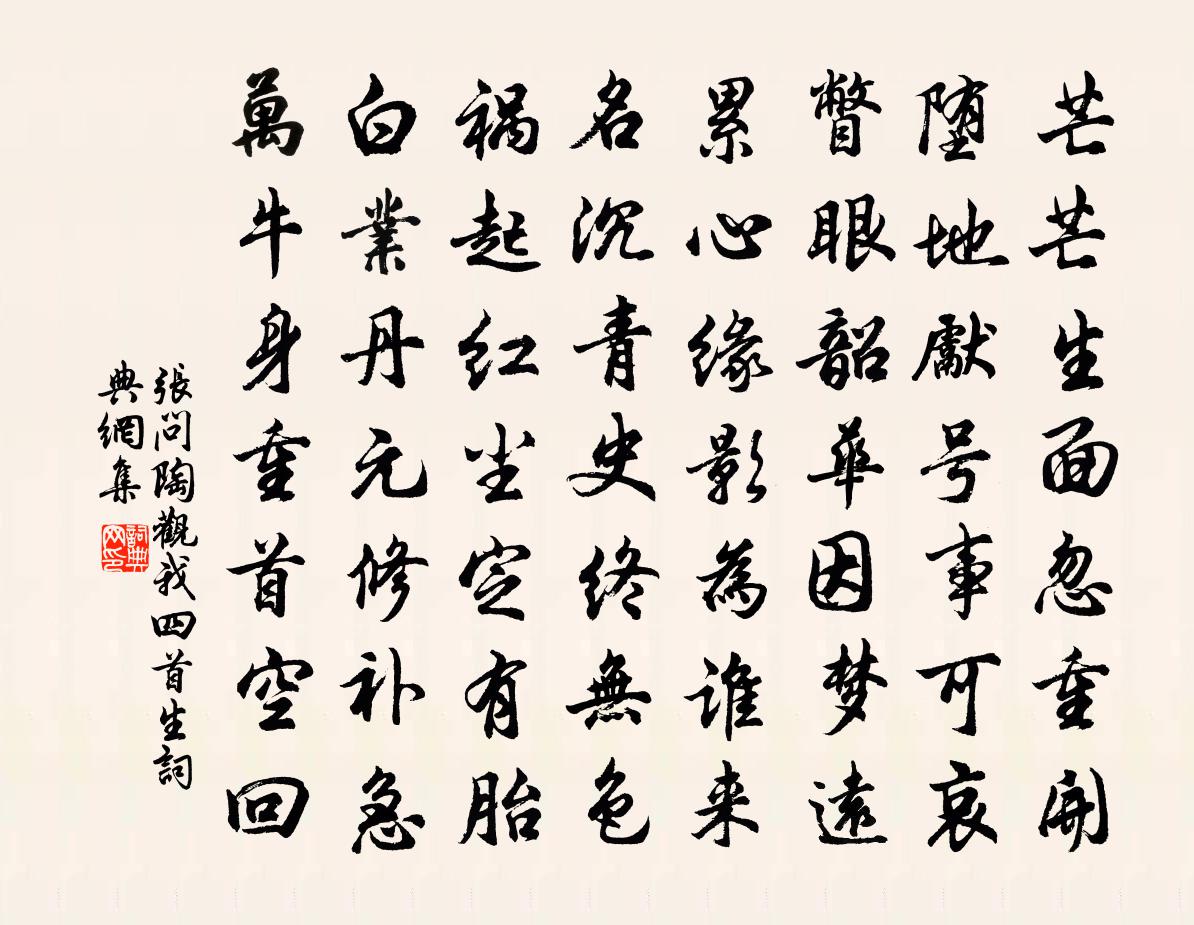 芒芒生面忽重開
堕地獻号事可哀
瞥眼韶華因梦遠
累心緣影為誰来
名沉青史终無色
祸起红尘定有胎
白業丹元修补急
萬牛身重首空回
張問陶觀我四首生詞
典網集
詞典
网印